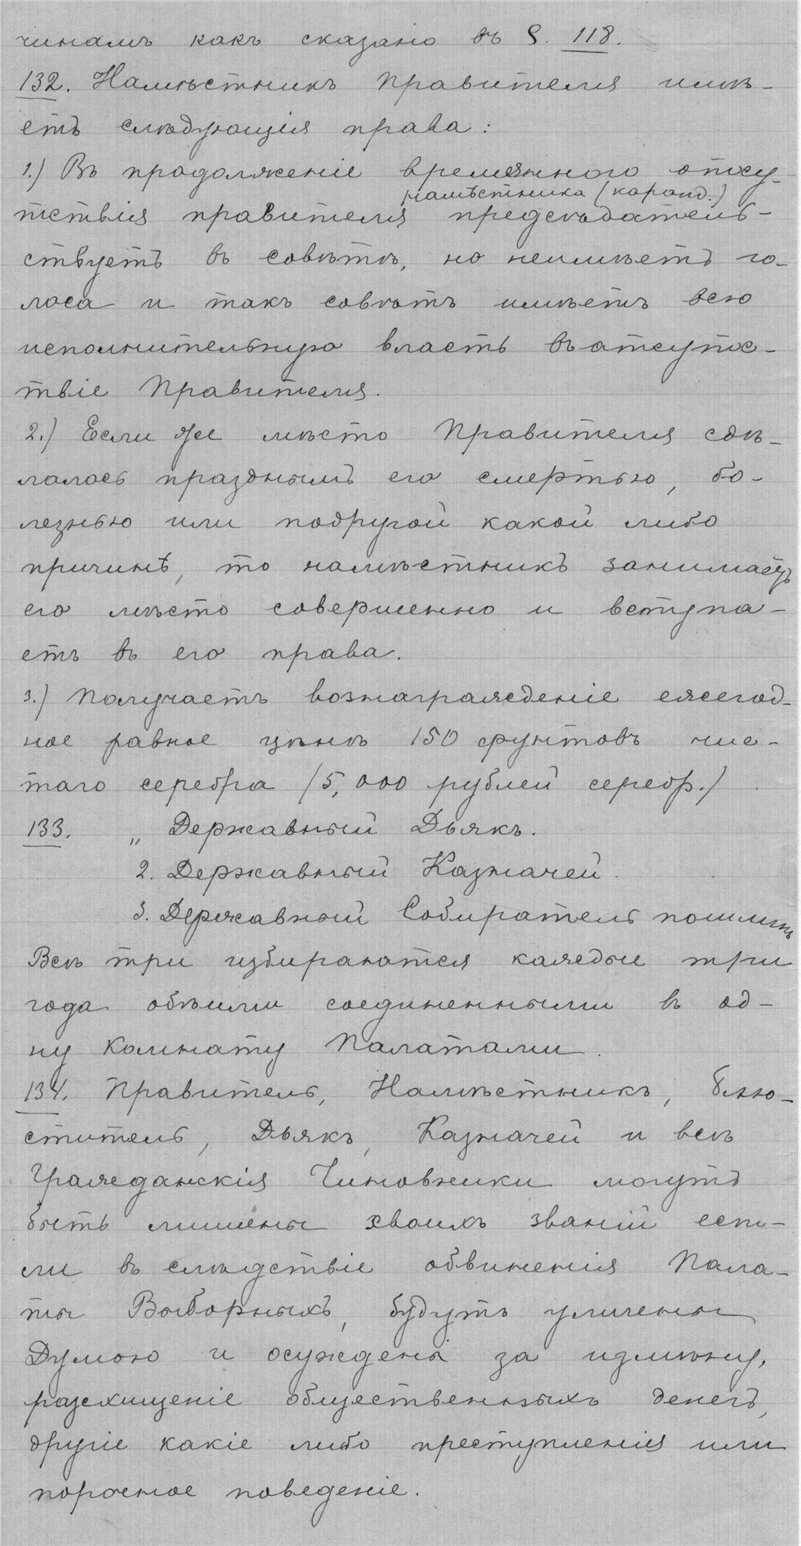 чинамъ какъ сказано въ §. 118.
132. Намѣстникъ Правителя имѣ-
етъ слѣдующія права:
1.) Въ продолженіе времяннаго отсу-
намѣстника (каранд.)
тствія правителя предсѣдатель-
ствуетъ въ совѣтѣ, но неимѣетъ го-
лоса и такъ совѣтъ имѣетъ всю
исполнительную власть въ отсутс-
твіе Правителя.
2.) Если же мѣсто Правителя сдѣ-
лалось празднымъ его смертью, бо-
лезнью или подругой какой либо
причинѣ, то намѣстникъ занимаетъ
его мѣсто совершенно и вступа-
етъ въ его права.
3.) Получаетъ вознагражденіе ежегод-
ное равное цѣнѣ 150 фунтовъ чис-
таго серебра (5,000 рублей серебр.)
133. „ Державный Дьякъ.
2. Державный Казначей.
3. Державный Собиратель пошлинъ
Всѣ три избираются каждые три
года обѣими соединенными въ од-
ну комнату Палатами.
134. Правитель, Намѣстникъ, блю-
ститель, Дьякъ, Казначей и всѣ
Гражданскія Чиновники могутъ
быть лишены своихъ званій есть-
ли въ слѣдствіе обвиненія Пала-
ты Выборныхъ, будутъ уличены
Думою и осуждены за измѣну,
расхищеніе общественныхъ денегъ,
другіе какіе либо преступленія или
порочное поведеніе.